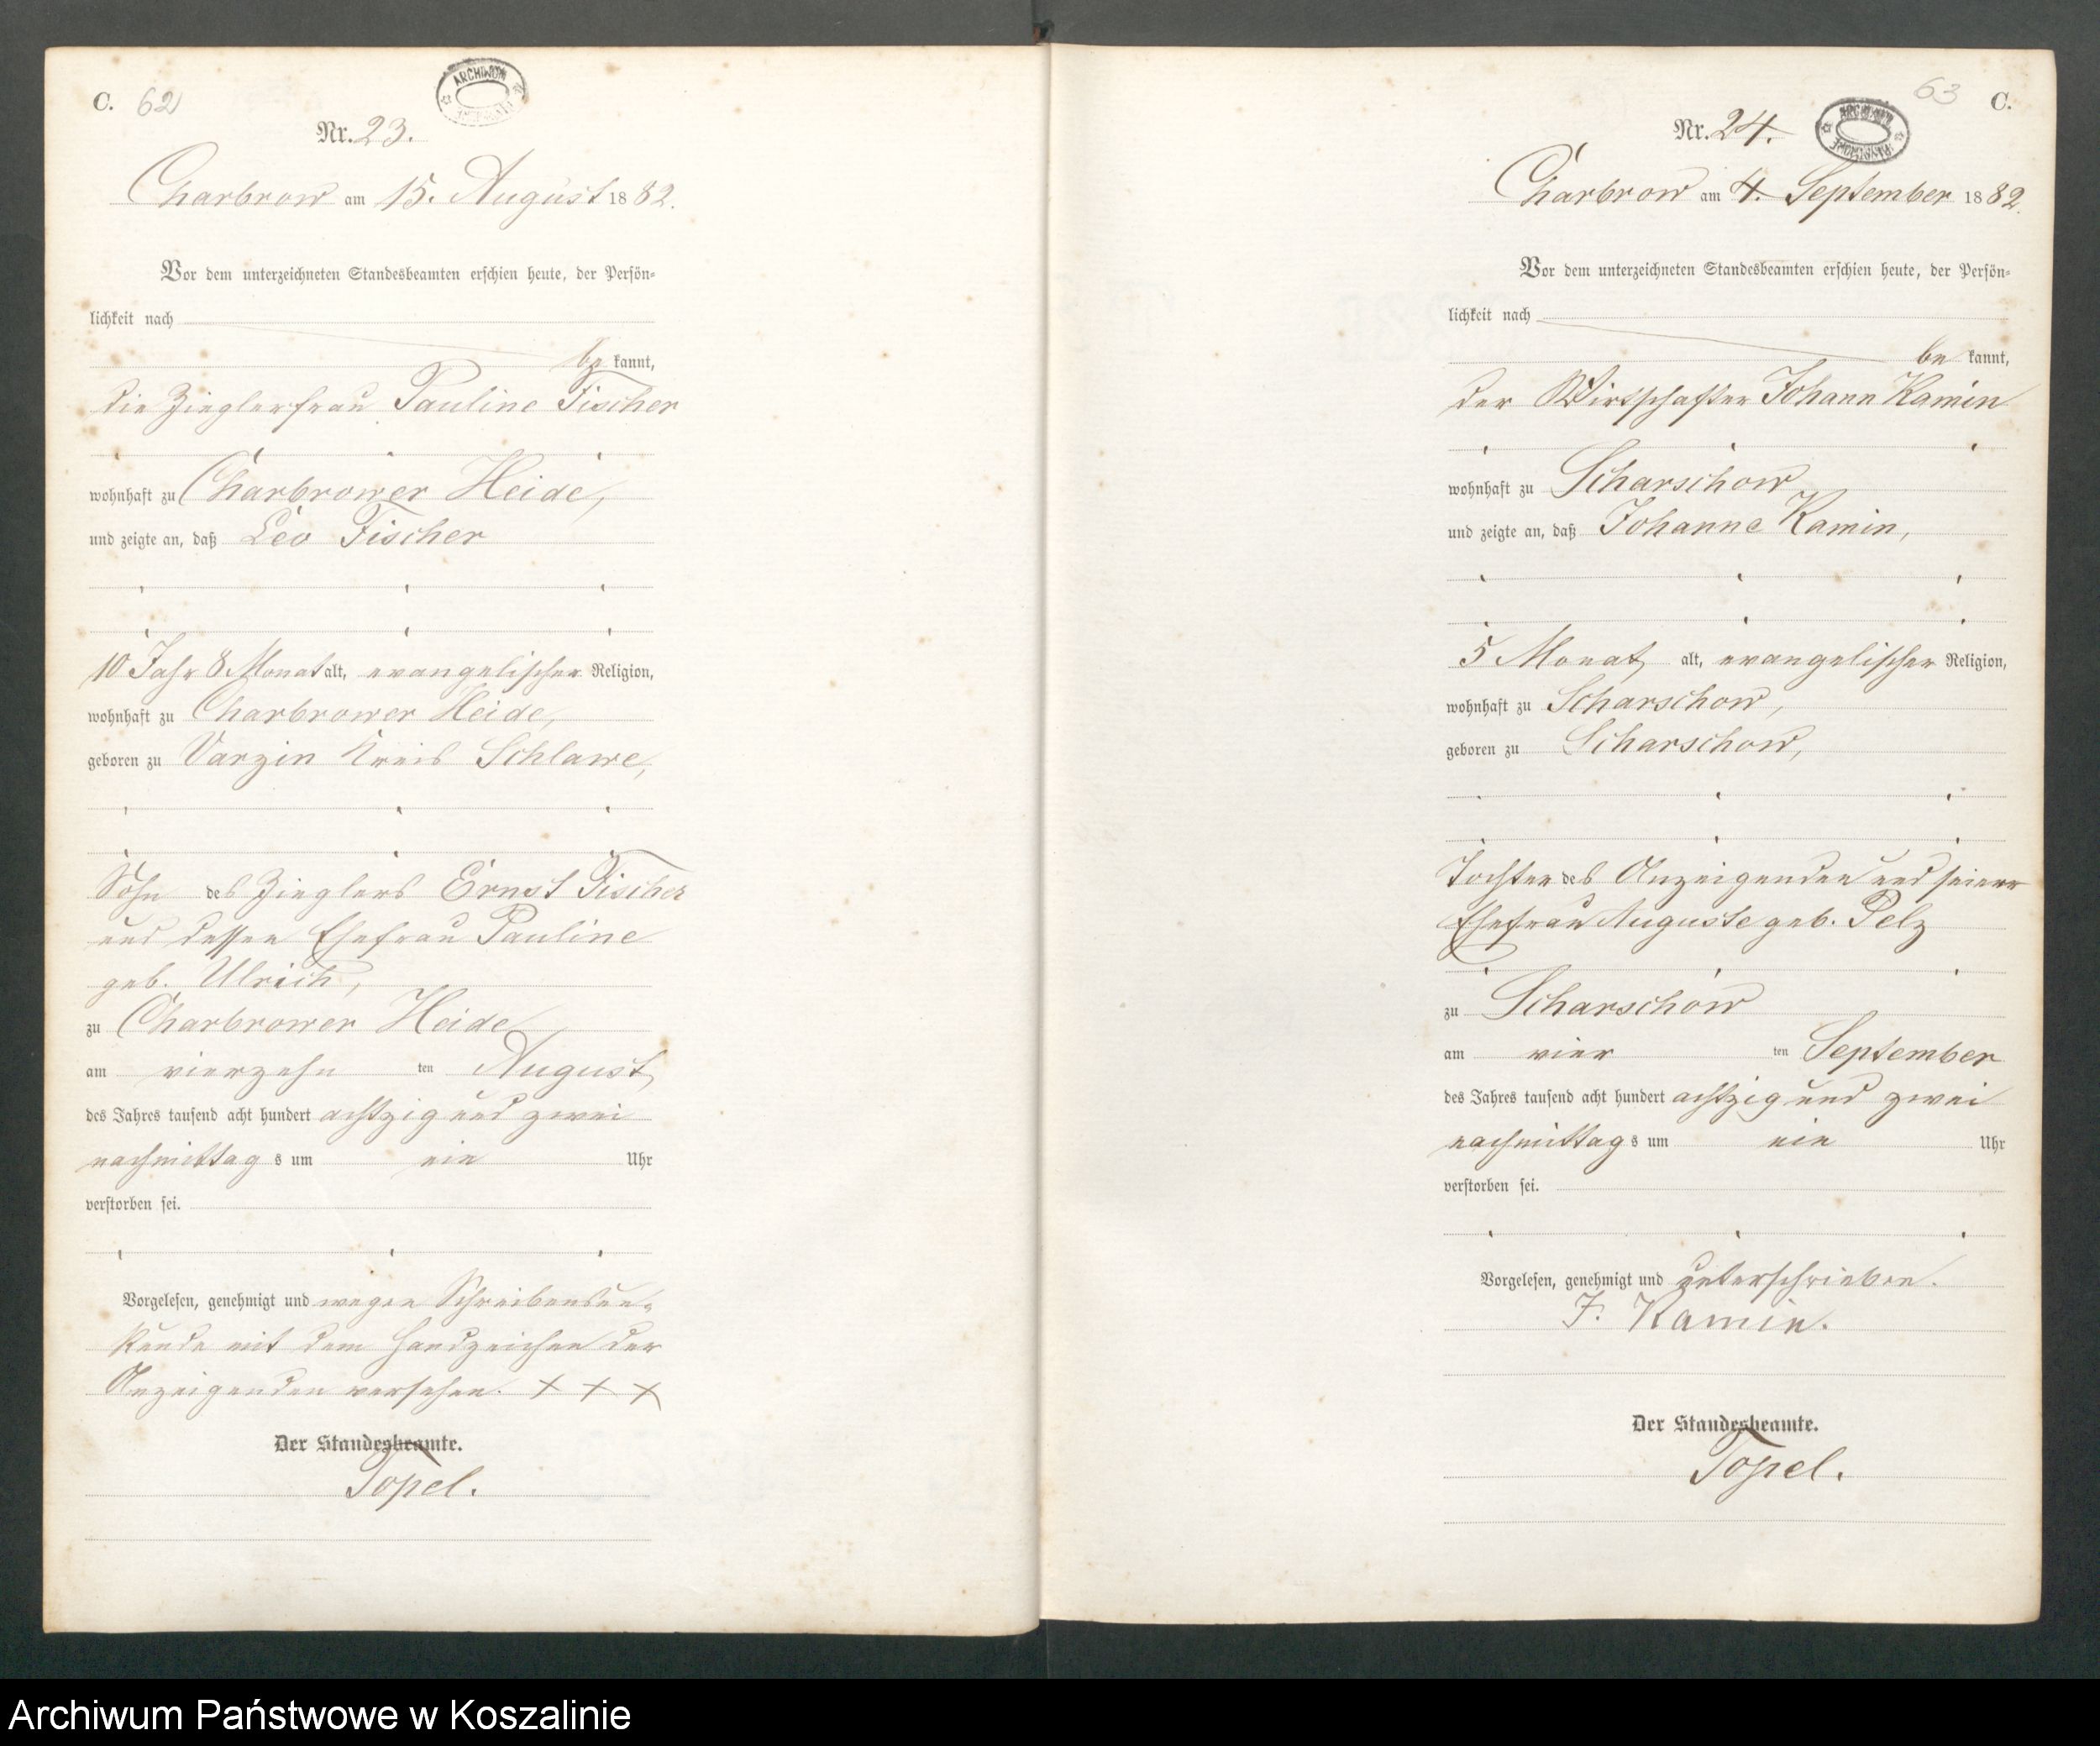 C. 62
ARCHIWUM
Nr. 23.
Charbrow am 15. August 1882.
Vor dem unterzeichneten Standesbeamten erschien heute, der Persön-
lichkeit nach
be kannt,
die Zieglerfrau Pauline Fischer
wohnhaft zu Charbrower Heide,
und zeigte an, daß Leo Fischer
10 Jahr 8 Monat alt, evangelischer Religion,
wohnhaft zu Charbrower Heide,
geboren zu Varzin Kreis Schlawe,
Sohn des Zieglers Ernst Fischer
und dessen Ehefrau Pauline
geb. Ulrich,
zu Charbrower Heide
am vierzehn ten August
des Jahres tausend acht hundert achtzig und zwei
nachmittag s um ein Uhr
verstorben sei.
Vorgelesen, genehmigt und wegen Schreibensun-
kunde mit dem Handzeichen der
Anzeigenden versehen. + + +
Der Standesbeamte.
Topel.
63 C.
ARCHIWUM PAŃSTWOWE
Nr. 24.
Charbrow am 4. September 1882.
Vor dem unterzeichneten Standesbeamten erschien heute, der Persön-
lichkeit nach
be kannt,
der Wirtschafter Johann Kamin
wohnhaft zu Scharschow
und zeigte an, daß Johanne Kamin,
5 Monat alt, evangelischer Religion,
wohnhaft zu Scharschow,
geboren zu Scharschow,
Tochter des Anzeigenden und seiner
Ehefrau Auguste geb. Pelz
zu Scharschow
am vier ten September
des Jahres tausend acht hundert achtzig und zwei
nachmittag s um ein Uhr
verstorben sei.
Vorgelesen, genehmigt und unterschrieben.
J. Kamin.
Der Standesbeamte.
Topel.
Archiwum Państwowe w Koszalinie